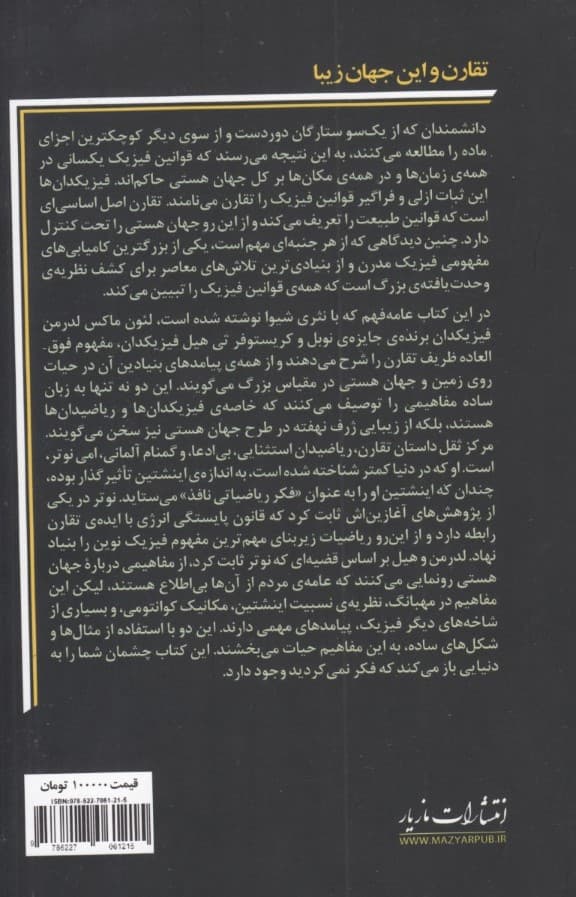 تقارن و این جهان زیبا
دانشمندان که از یک‌سو ستارگان دوردست و از سوی دیگر کوچکترین اجزای
ماده را مطالعه می‌کنند، به این نتیجه می‌رسند که قوانین فیزیک یکسانی در
همه‌ی زمان‌ها و در همه‌ی مکان‌ها بر کل جهان هستی حاکم‌اند. فیزیکدان‌ها
این ثبات ازلی و فراگیر قوانین فیزیک را تقارن می‌نامند. تقارن اصل اساسی‌ای
است که قوانین طبیعت را تعریف می‌کند و از این رو جهان هستی را تحت کنترل
دارد. چنین دیدگاهی که از هر جنبه‌ای مهم است، یکی از بزرگترین کامیابی‌های
مفهومی فیزیک مدرن و از بنیادی‌ترین تلاش‌های معاصر برای کشف نظریه‌ی
وحدت‌یافته‌ی بزرگ است که همه‌ی قوانین فیزیک را تبیین می‌کند.
در این کتاب عامه‌فهم که با نثری شیوا نوشته شده است، لئون ماکس لدرمن
فیزیکدان برنده‌ی جایزه‌ی نوبل و کریستوفر تی هیل فیزیکدان، مفهوم فوق-
العاده ظریف تقارن را شرح می‌دهند و از همه‌ی پیامدهای بنیادین آن در حیات
روی زمین و جهان هستی در مقیاس بزرگ می‌گویند. این دو نه تنها به زبان
ساده مفاهیمی را توصیف می‌کنند که خاصه‌ی فیزیکدان‌ها و ریاضیدان‌ها
هستند، بلکه از زیبایی ژرف نهفته در طرح جهان هستی نیز سخن می‌گویند.
مرکز ثقل داستان تقارن، ریاضیدان استثنایی، بی‌ادعا، و گمنام آلمانی، امی نوتر،
است. او که در دنیا کمتر شناخته شده است، به اندازه‌ی اینشتین تأثیرگذار بوده،
چندان که اینشتین او را به عنوان «فکر ریاضیاتی نافذ» می‌ستاید. نوتر در یکی
از پژوهش‌های آغازین‌اش ثابت کرد که قانون پایستگی انرژی با ایده‌ی تقارن
رابطه دارد و از این‌رو ریاضیات زیربنای مهم‌ترین مفهوم فیزیک نوین را بنیاد
نهاد. لدرمن و هیل بر اساس قضیه‌ای که نوتر ثابت کرد، از مفاهیمی دربارهٔ جهان
هستی رونمایی می‌کنند که عامه‌ی مردم از آن‌ها بی‌اطلاع هستند، لیکن این
مفاهیم در مهبانگ، نظریه‌ی نسبیت اینشتین، مکانیک کوانتومی، و بسیاری از
شاخه‌های دیگر فیزیک، پیامدهای مهمی دارند. این دو با استفاده از مثال‌ها و
شکل‌های ساده، به این مفاهیم حیات می‌بخشند. این کتاب چشمان شما را به
دنیایی باز می‌کند که فکر نمی‌کردید وجود دارد.
قیمت ۱۰۰۰۰۰ تومان
ISBN:978-622-7061-21-5
9 786227 061215
انتشارات مازیار
WWW.MAZYARPUB.IR